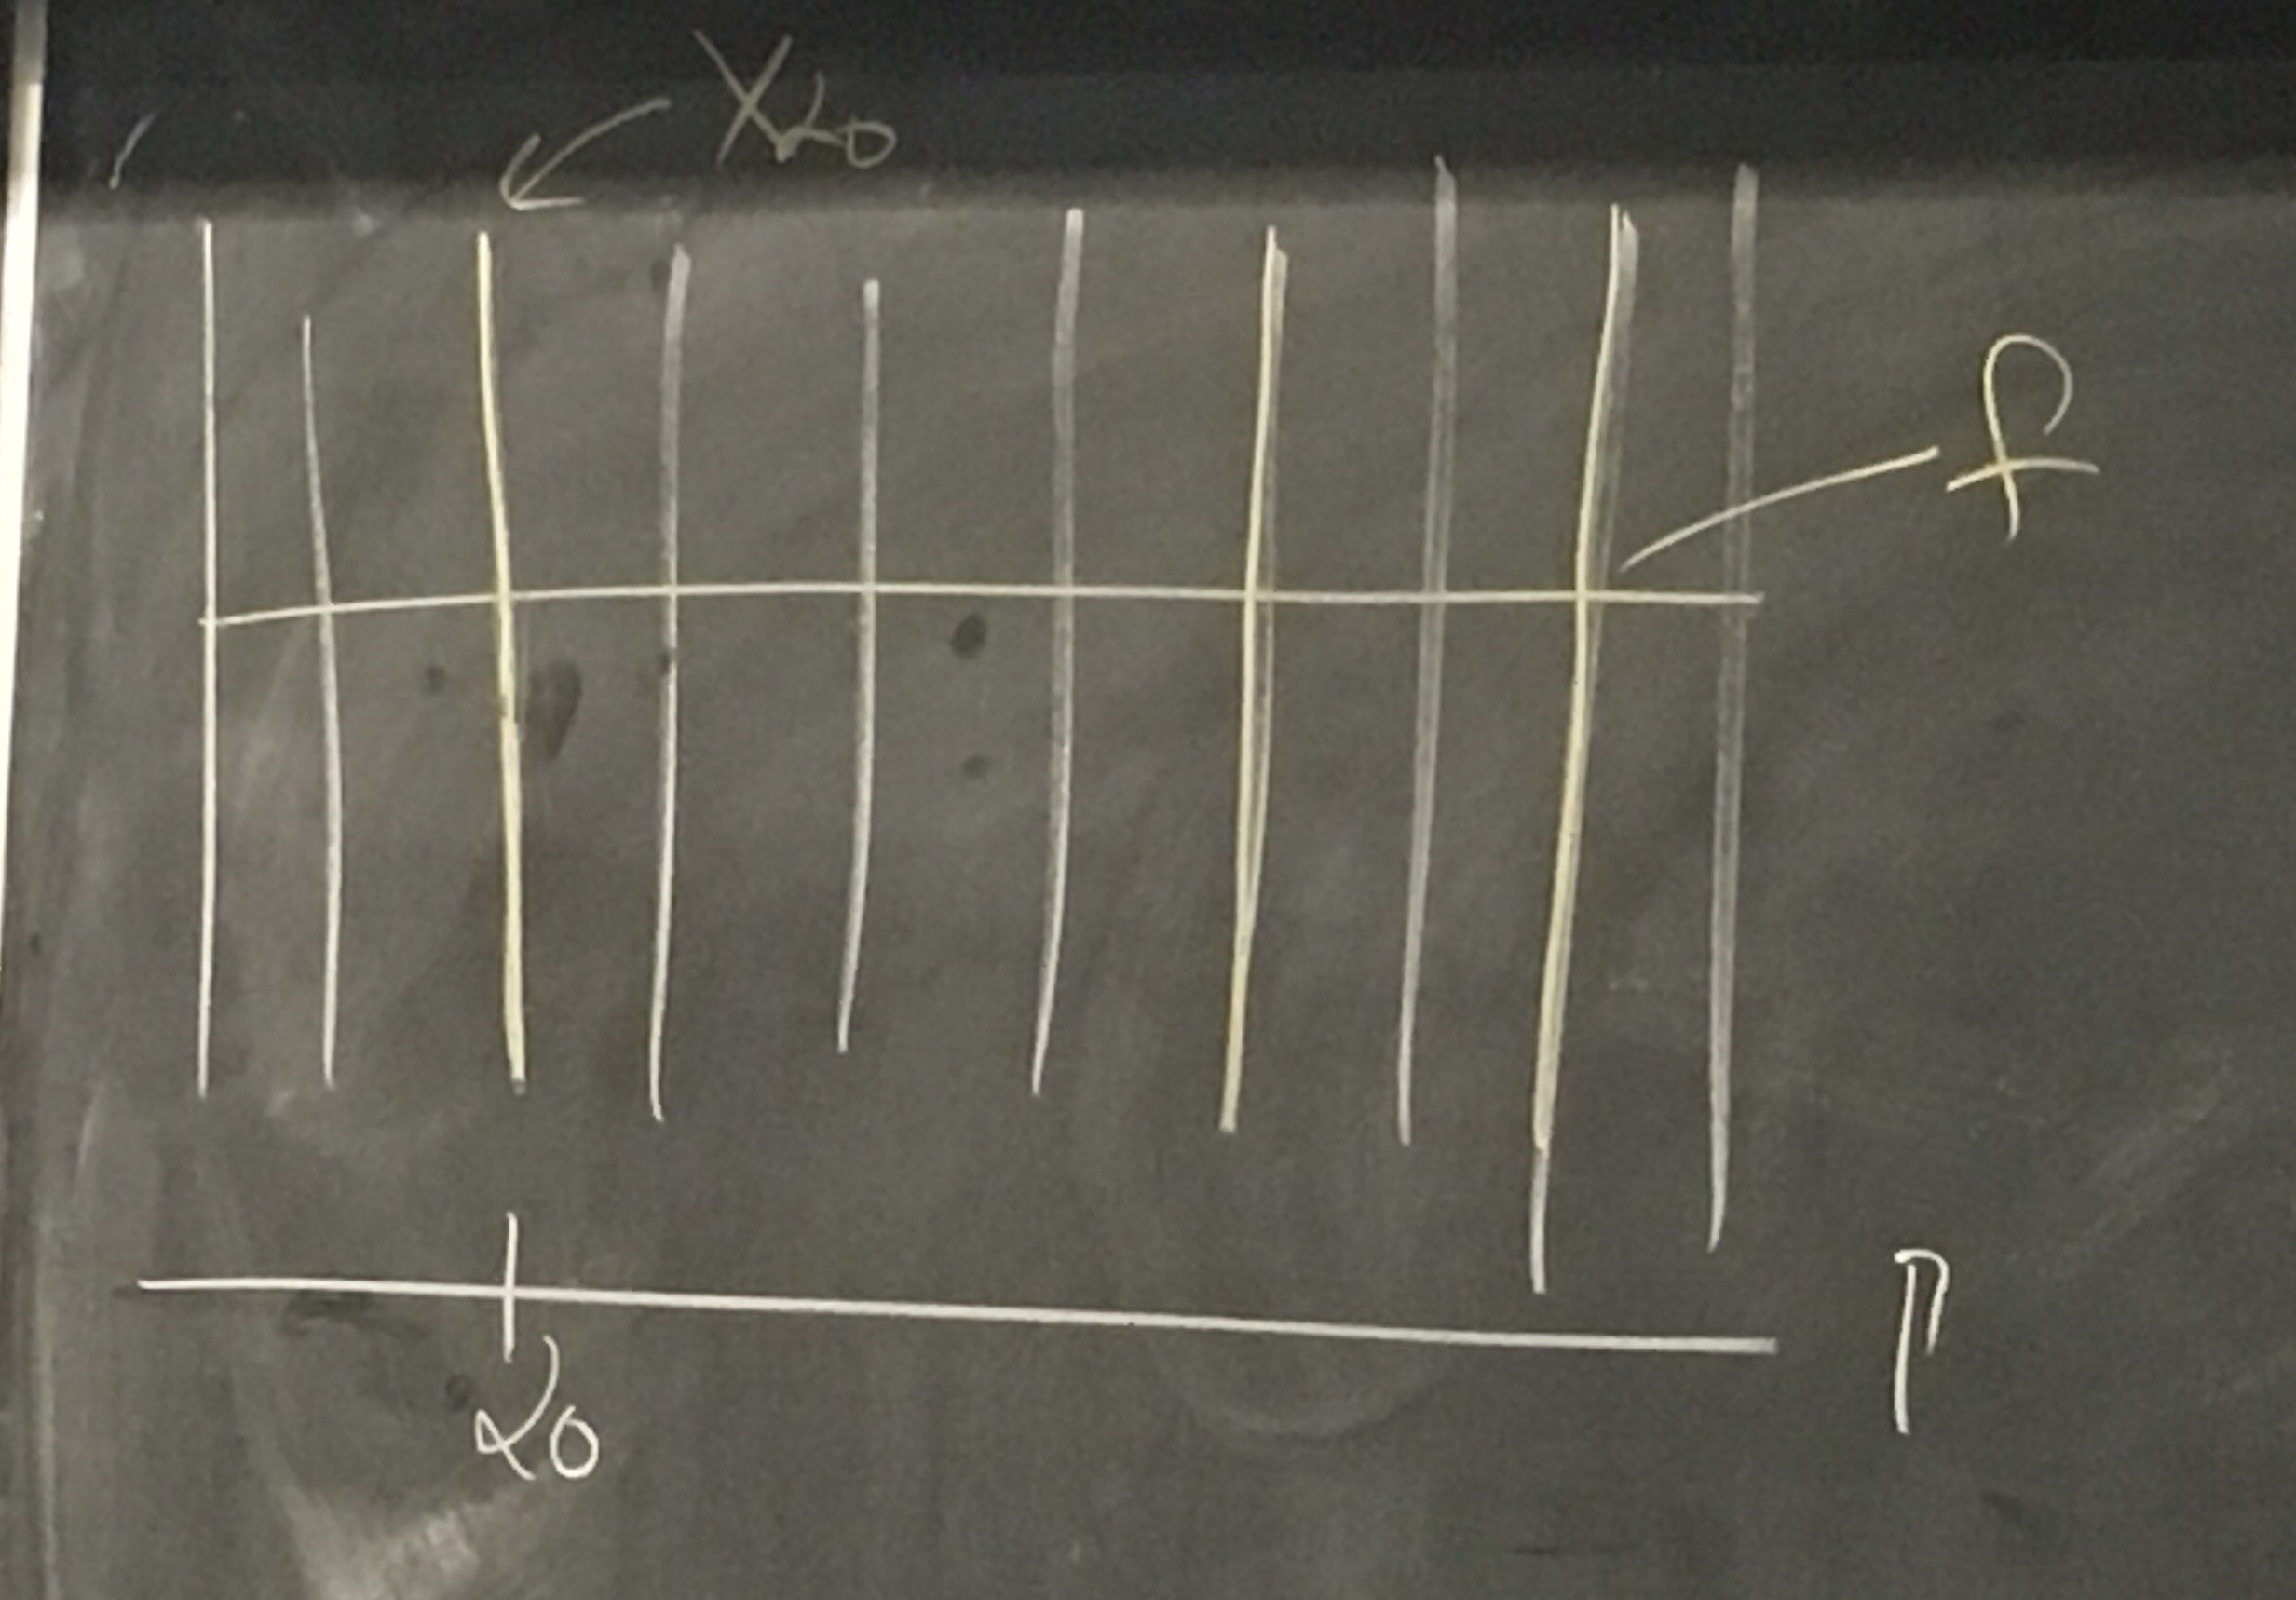 Xα₀
f
α₀
Γ